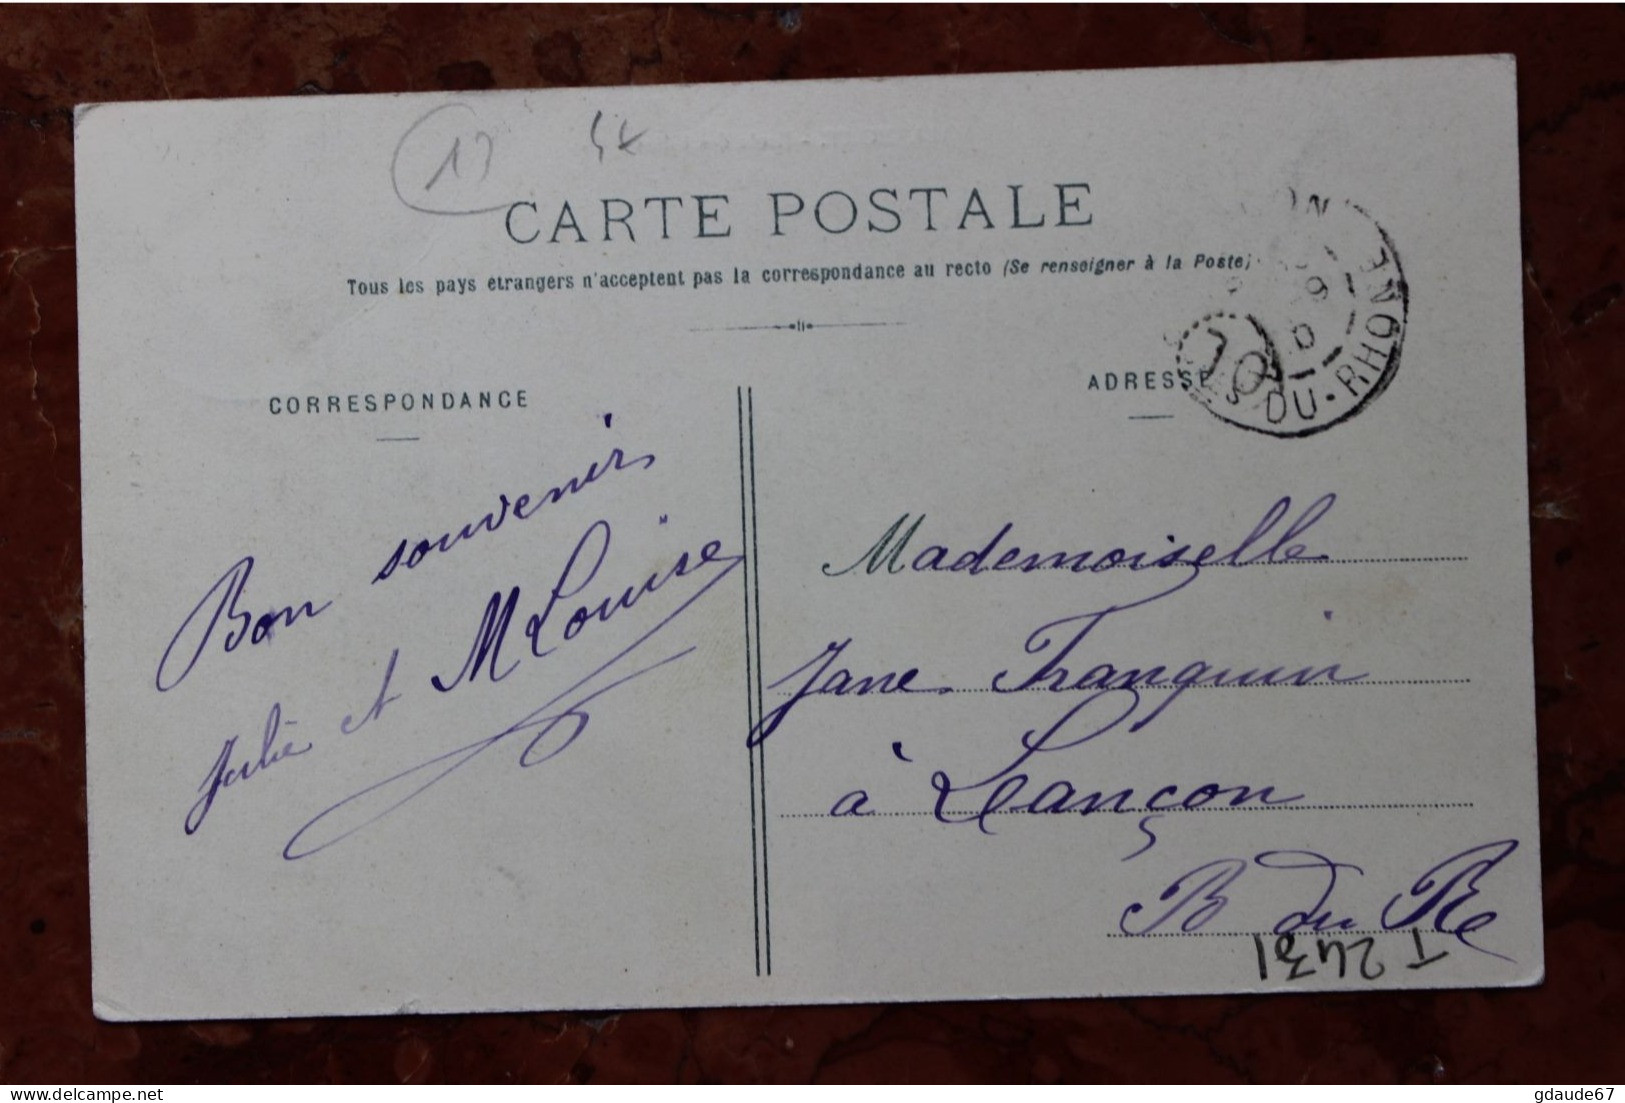 13
CARTE POSTALE
Tous les pays étrangers n'acceptent pas la correspondance au recto (Se renseigner à la Poste)
CORRESPONDANCE
ADRESSE
DU-RHONE
Bon souvenir
Julie et M Louise
Mademoiselle
Jane Franquin
à Lançon
B du Re
T 2431
delcampe.net
gdaude67